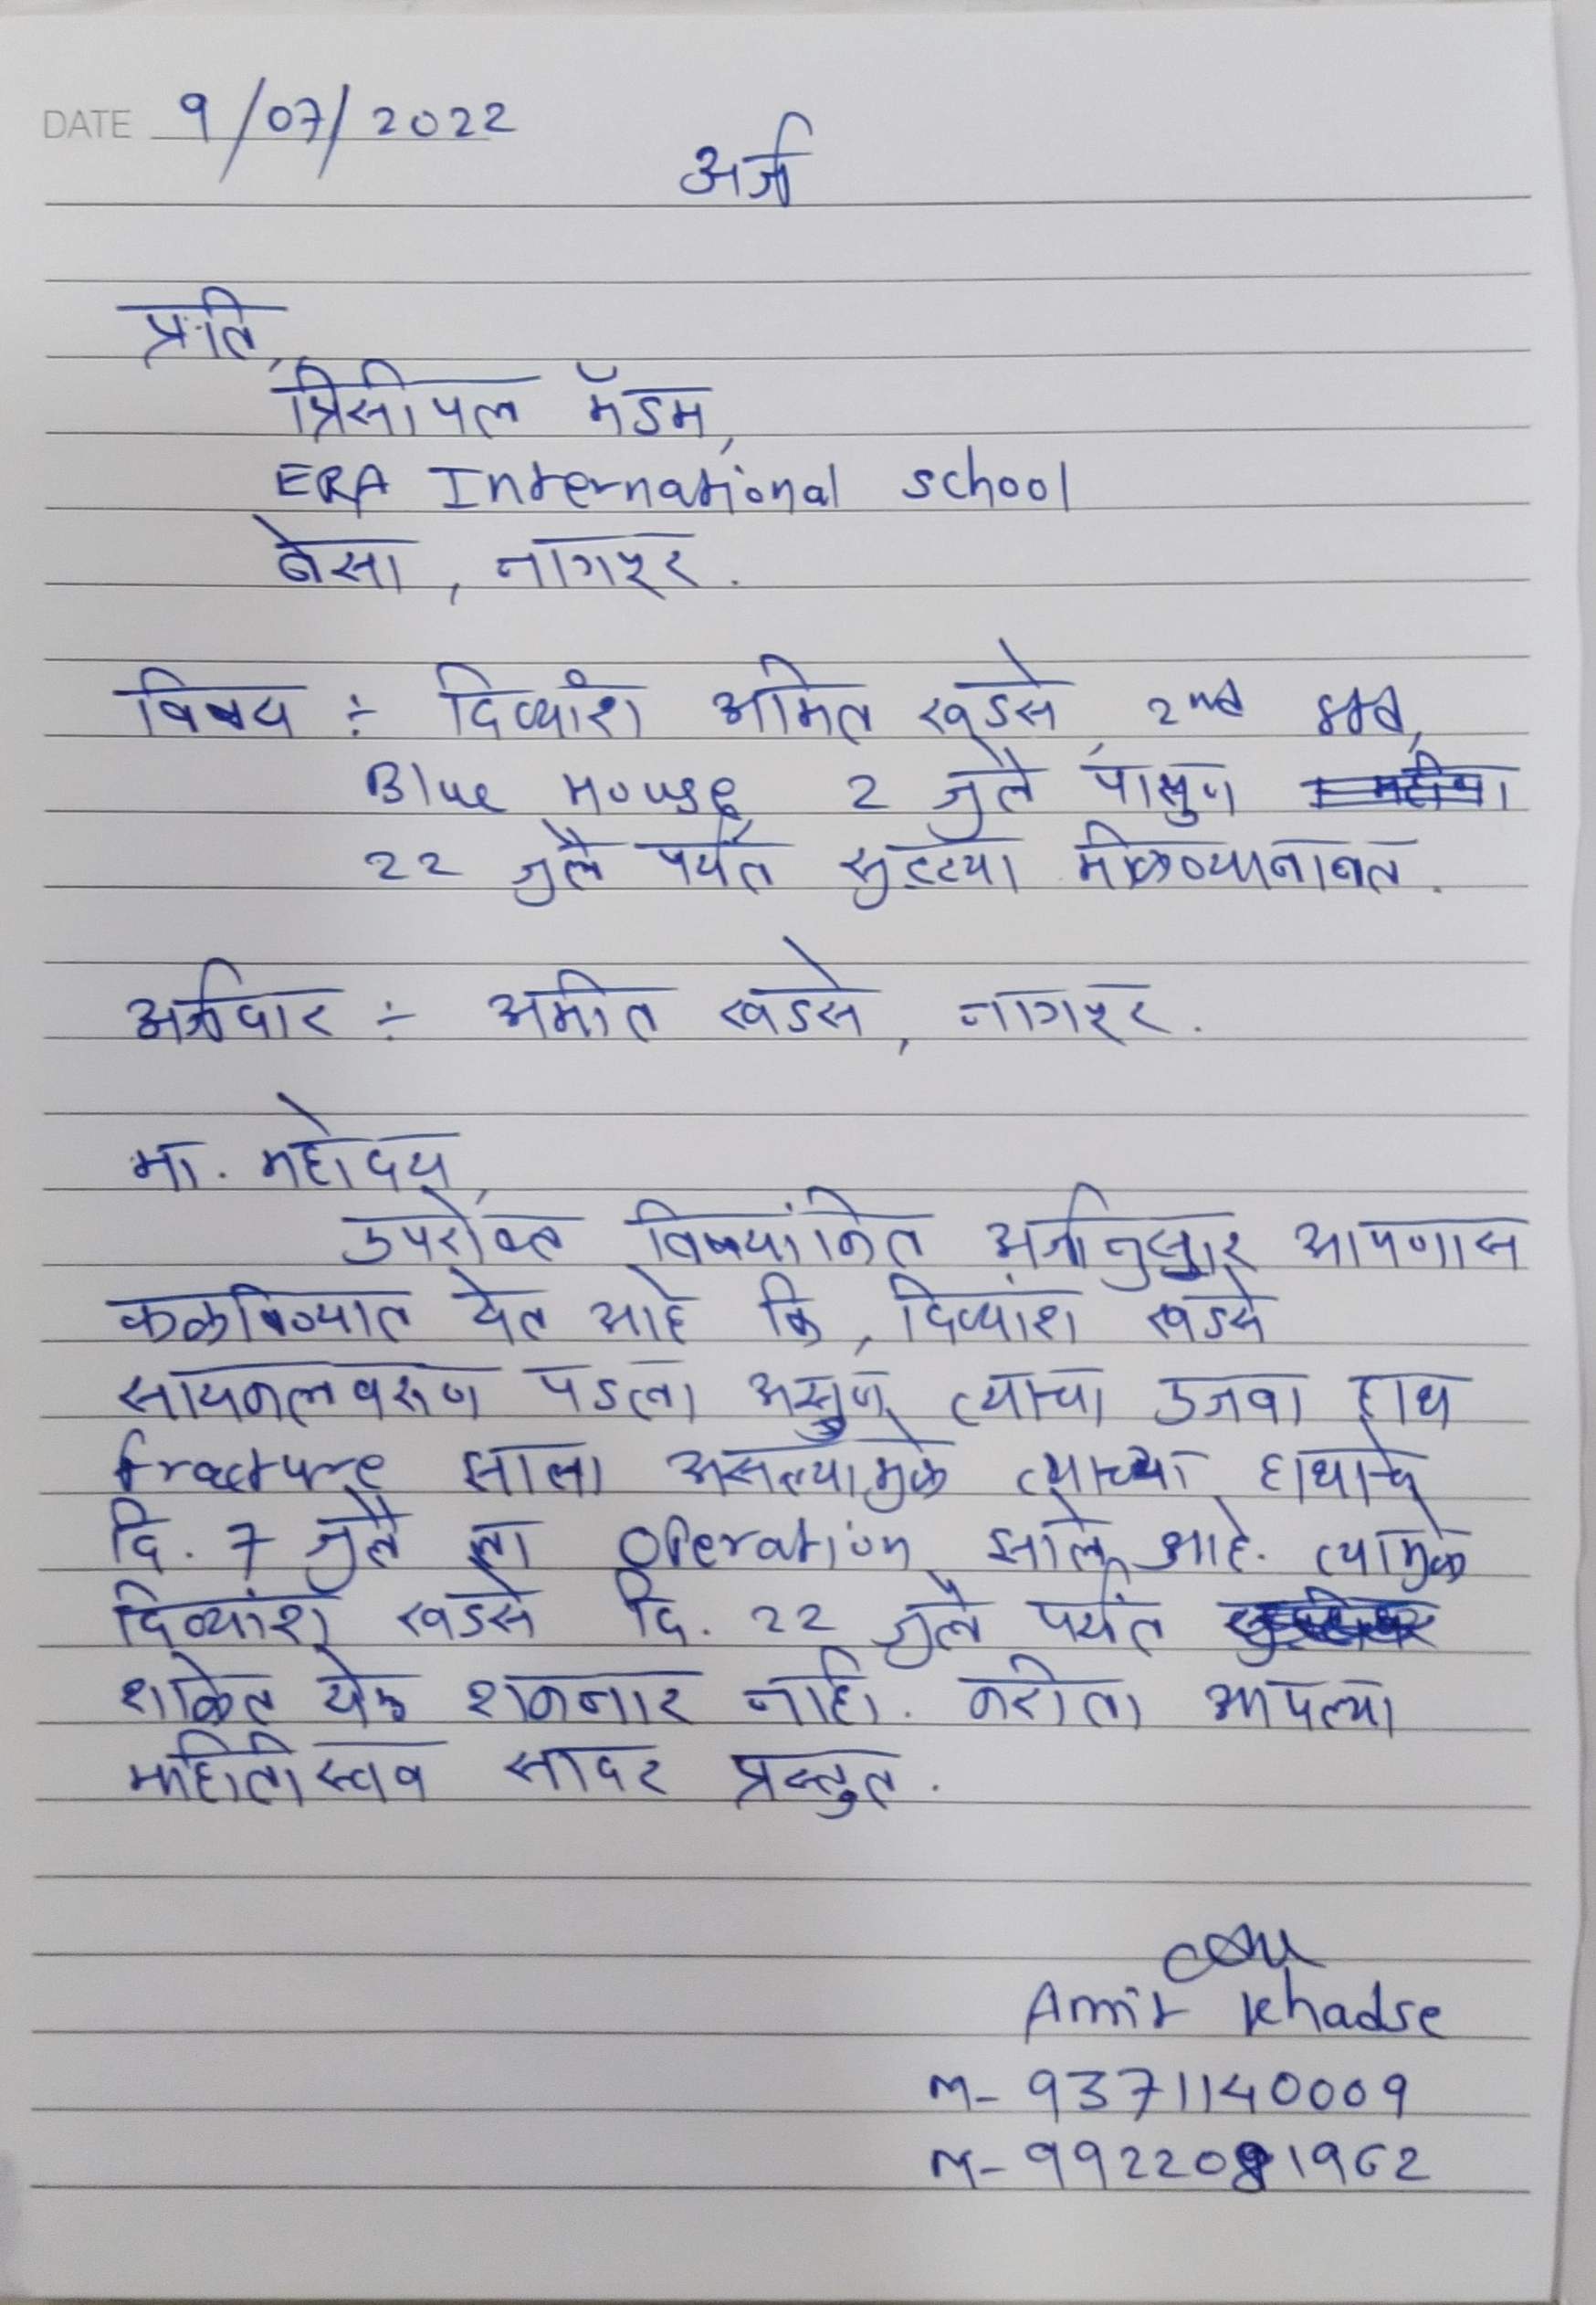 DATE 9/07/2022
अर्ज
प्रति,
प्रिंसीपल मॅडम,
ERA International school
बेसा, नागपूर.
विषय :- दिव्यांश अमित खडसे, 2nd
Blue House, 2 जुलै पासुण
22 जुलै पर्यंत सुट्ट्या मीळण्याबाबत.
अर्जदार :- अमीत खडसे, नागपूर.
मा. महोदय,
उपरोक्त विषयांकित अर्जानुसार आपणास
कळविण्यात येत आहे कि, दिव्यांश खडसे
सायकलवरुण पडला असुण त्याचा उजवा हाथ
fracture झाला असल्यामुळे त्याच्या हाथाचे
दि. 7 जुलै ला operation झाले आहे. त्यामुळे
दिव्यांश खडसे दि. 22 जुलै पर्यंत
शाळेत येऊ शकनार नाही. करीता आपल्या
माहितीस्तव सादर प्रस्तुत.
Amit Khadse
M- 9371140009
M- 9922081962